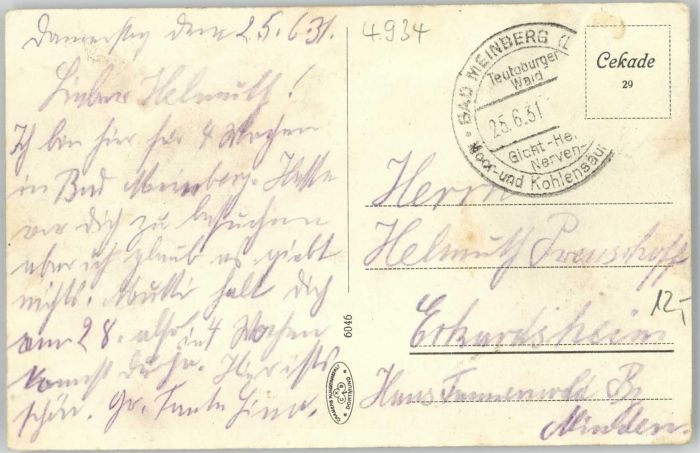 Donnerstag den 25.6.31.
Lieber Helmuth!
Ich bin hier für 4 Wochen
in Bad Meinberg. Hatte
vor dich zu besuchen
aber ich glaub es giebt
nichts. Mutti holt dich
am 28. also in 4 Wochen
kommst du ja. Hier ists
schön. Gr. Tante Lina.
4.934
BAD MEINBERG (L
Teutoburger
Wald
25.6.31
Gicht-He
Nerven-
Moor- und Kohlensäur
Cekade
29
Herrn
Helmuth Preuschoff
Erhardsheim
Haus Tannenwald B.
Minden.
12,-
6046
DORTMUND